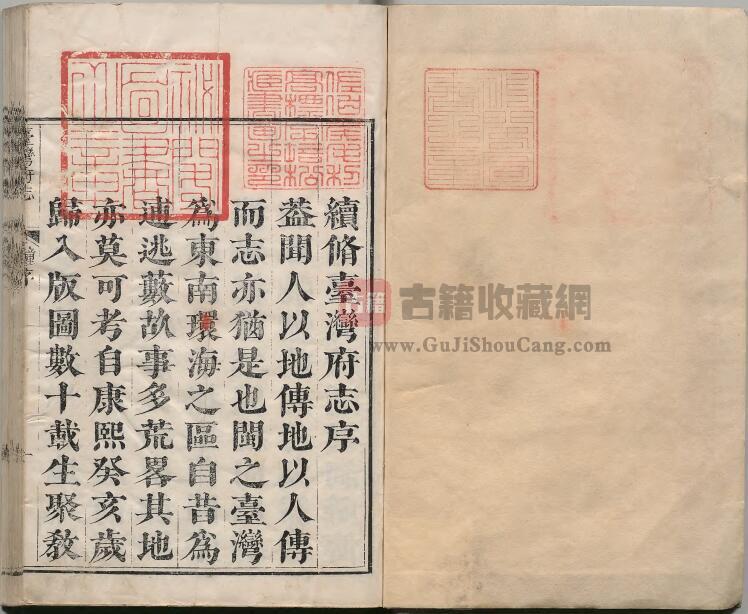 續脩臺灣府志序
葢聞人以地傳地以人傳
而志亦猶是也閩之臺灣
爲東南環海之區自昔爲
逋逃藪故事多荒畧其地
亦莫可考自康熙癸亥歲
歸入版圖數十載生聚敎
臺灣府志
鐘序
古籍
古籍收藏網
www.GuJiShouCang.com